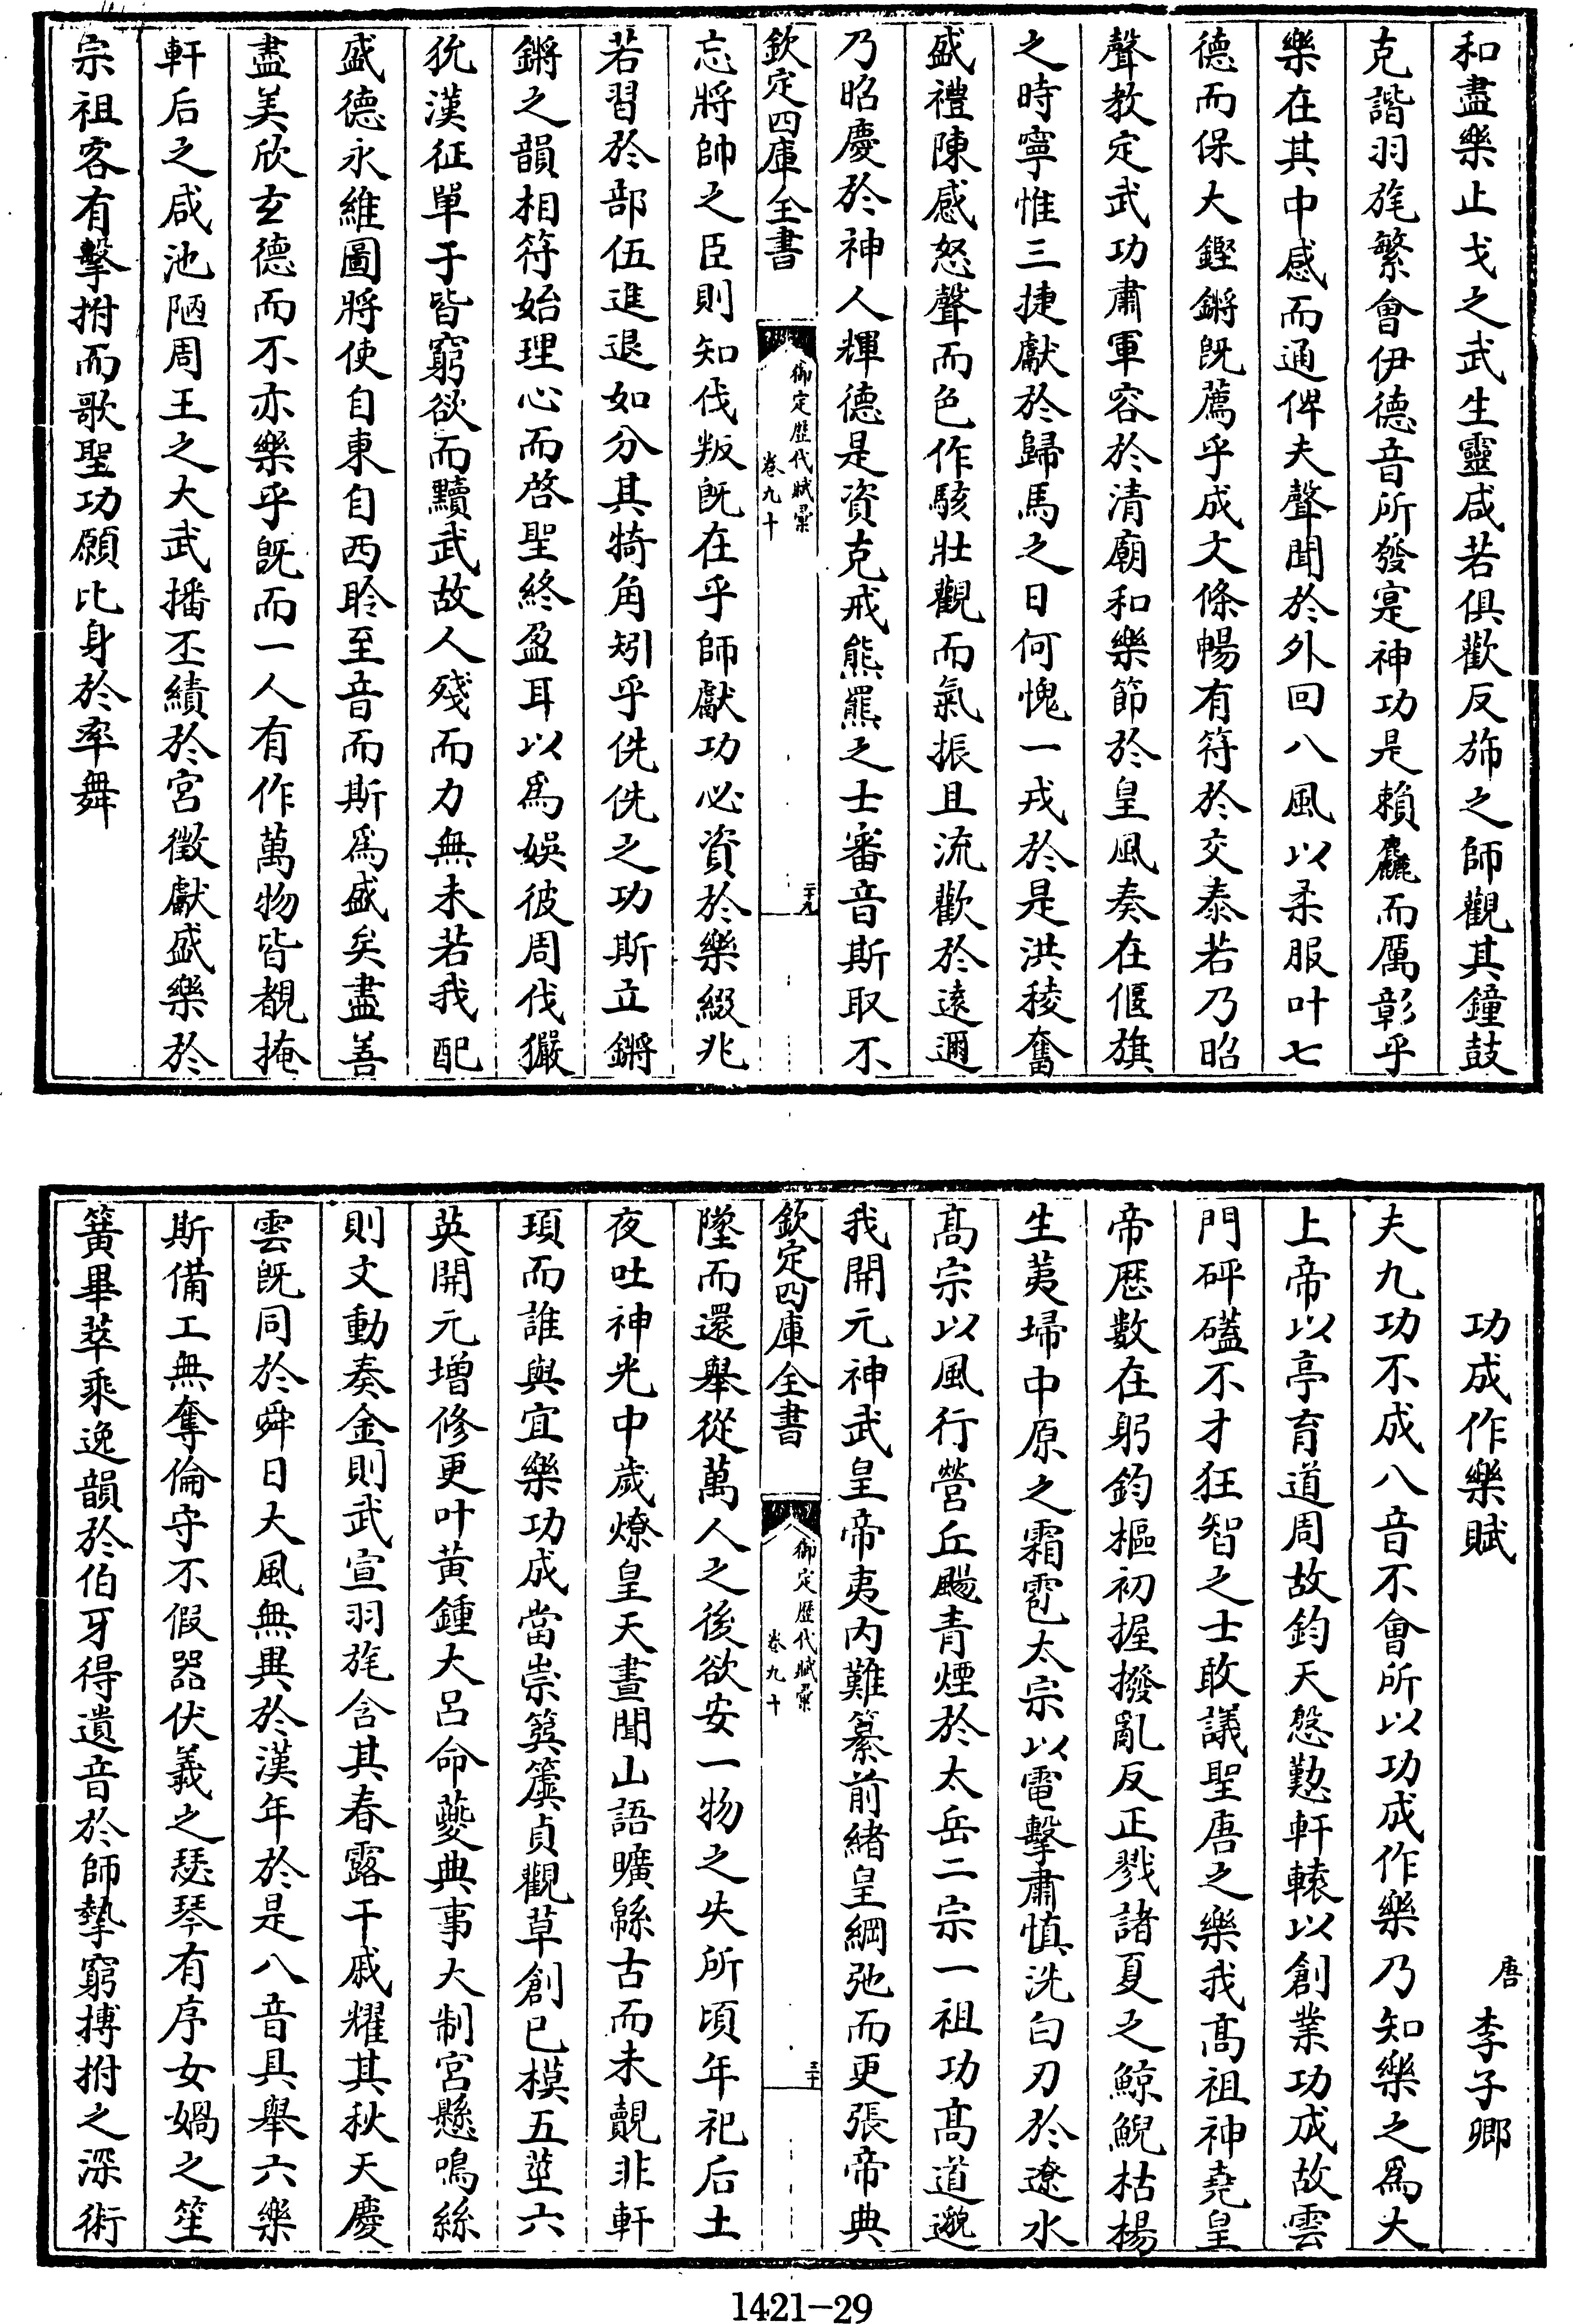 和盡樂止戈之武生靈咸若俱歡反斾之師觀其鐘鼓
克諧羽旄繁會伊德音所發寔神功是賴麤而厲彰乎
樂在其中感而通俾夫聲聞於外回八風以柔服叶七
德而保大鏗鏘旣薦乎成文條暢有符於交泰若乃昭
聲教定武功肅軍容於清廟和樂節於皇風奏在偃旗
之時寧惟三捷獻於歸馬之日何愧一戎於是洪稜奮
盛禮陳感怒聲而色作駭壯觀而氣振且流歡於遠邇
乃昭慶於神人輝德是資克戒熊羆之士審音斯取不
欽定四庫全書
御定歴代賦彙
卷九十
二十九
忘將帥之臣則知伐叛旣在乎師獻功必資於樂綴兆
若習於部伍進退如分其犄角矧乎侁侁之功斯立鏘
鏘之韻相符始理心而啓聖終盈耳以為娛彼周伐玁
狁漢征單于皆窮欲而黷武故人殘而力無未若我配
盛德永維圖將使自東自西聆至音而斯為盛矣盡善
盡美欣玄德而不亦樂乎旣而一人有作萬物皆覩掩
軒后之咸池陋周王之大武播丕績於宮徵獻盛樂於
宗祖客有擊拊而歌聖功願比身於率舞
功成作樂賦
唐 李子卿
夫九功不成八音不會所以功成作樂乃知樂之為大
上帝以亭育道周故鈞天慇懃軒轅以創業功成故雲
門砰礚不才狂智之士敢議聖唐之樂我髙祖神堯皇
帝厯數在躬鈞樞初握撥亂反正戮諸夏之鯨鯢枯楊
生荑埽中原之霜雹太宗以電擊肅慎洗白刃於遼水
髙宗以風行營丘颺青煙於太岳二宗一祖功髙道邈
我開元神武皇帝夷内難纂前緒皇綱弛而更張帝典
欽定四庫全書
御定歴代賦彙
卷九十
三十
墜而還舉從萬人之後欲安一物之失所頃年祀后土
夜吐神光中歲燎皇天晝聞山語曠緜古而未覿非軒
頊而誰與宜樂功成當崇簨簴貞觀草創已模五莖六
英開元增修更叶黄鍾大呂命夔典事大制宮懸鳴絲
則文動奏金則武宣羽旄含其春露干戚耀其秋天慶
雲旣同於舜日大風無異於漢年於是八音具舉六樂
斯備工無奪倫守不假器伏義之瑟琴有序女媧之笙
簧畢萃乘逸韻於伯牙得遺音於師摯窮搏拊之深術
1421-29